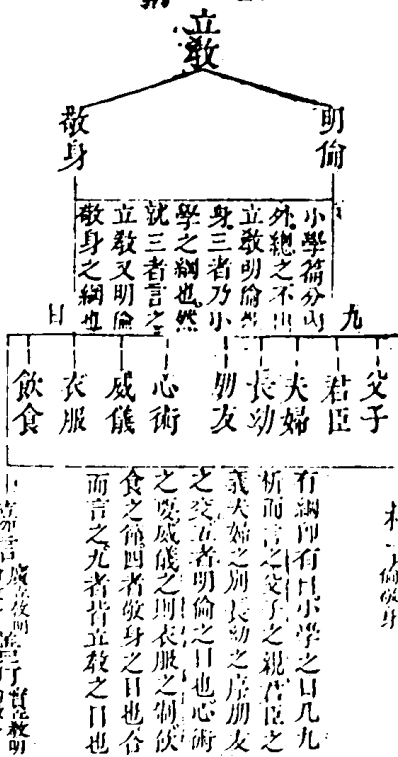 立教
明倫
敬身
小學篇分内
外總之不出
立教明倫敬
身三者乃小
學之綱也然
就三者言之
立教又明倫
敬身之綱也
九
目
父子
君臣
夫婦
長幼
朋友
心術
威儀
衣服
飲食
有綱即有目小學之目凡九
析而言之父子之親君臣之
義夫婦之別長幼之序朋友
之交五者明倫之目也心術
之要威儀之則衣服之制飲
食之節四者敬身之目也合
而言之九者皆立教之目也
倫敬身
嘉言廣立教明
善行實立教明